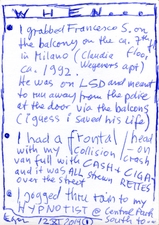 WHEN...
• I grabbed Francesco S. on
the balcony on the ca. 7th
in Milano (Claudio floor,
Weyeners apt)
ca. 1992.
He was on LSD and meant
to run away from the police
at the door via the balcony
(I guess I saved his life)
• I had a frontal / head
with my collision -on
van full with CASH + CIGA- crash
and it was ALL strewn RETTES
over the street
• I jogged thru table to my
HYPNOTIST @ Central Park
South to...
12 XI 2019 (1)